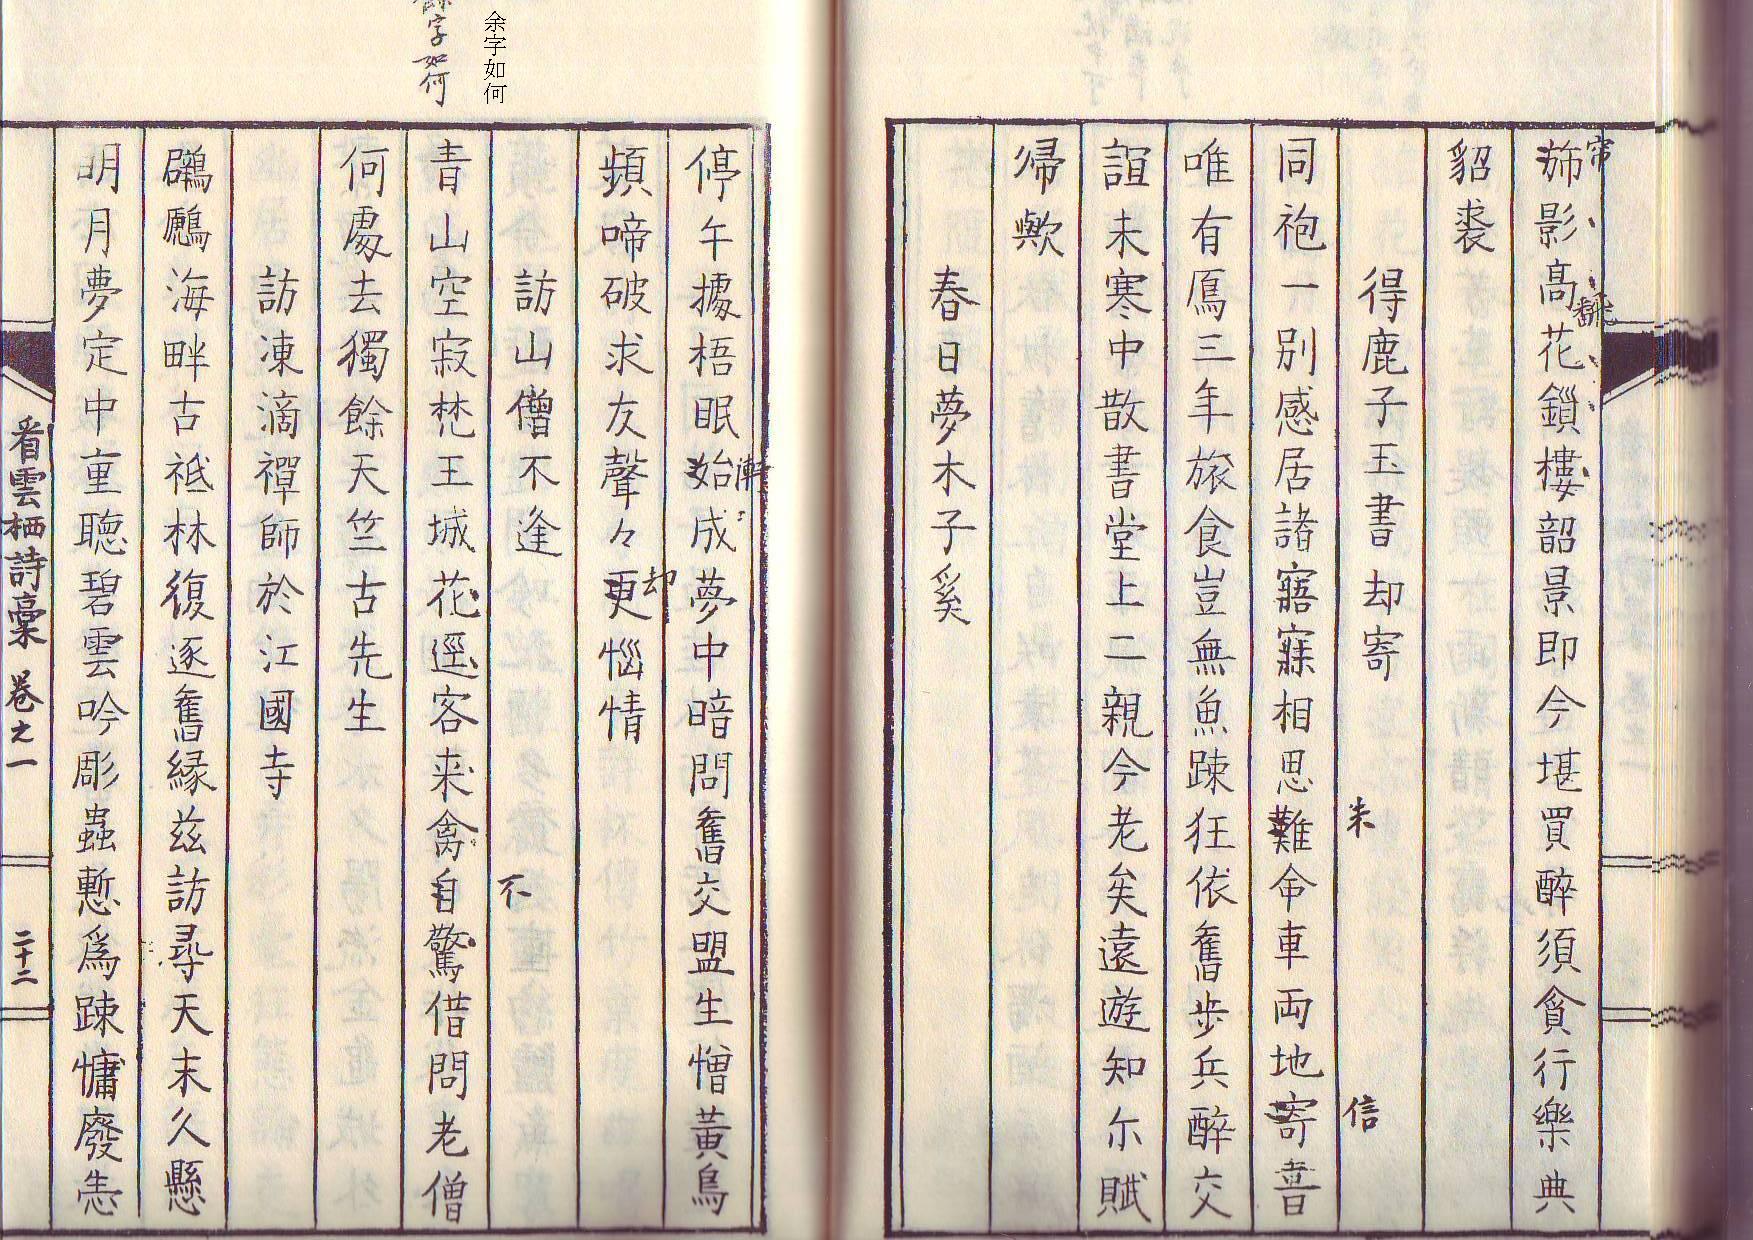 斾影高花鎻樓韶景即今堪買醉須貪行樂典
帘
飜
貂裘
得鹿子玉書却寄
同袍一別感居諸寤寐相思難命車両地寄音
未
信
唯有鴈三年旅食豈無魚踈狂依舊歩兵醉交
誼未寒中散書堂上二親今老矣遠遊知尓賦
帰歟
春日夢木子奚
停午據梧眠始成夢中暗問舊交盟生憎黃鳥
漸
頻啼破求友聲々更惱情
却
訪山僧不逢
青山空寂梵王城花逕客来禽自驚借問老僧
不
何處去獨餘天竺古先生
余字如何
餘字如何
訪凍滴禪師於江國寺
鸊鷉海畔古祗林復逐舊縁茲訪尋天末久懸
明月夢定中重聴碧雲吟彫蟲慙爲踈慵廢恙
看雲栖詩稾 卷之一
二十二